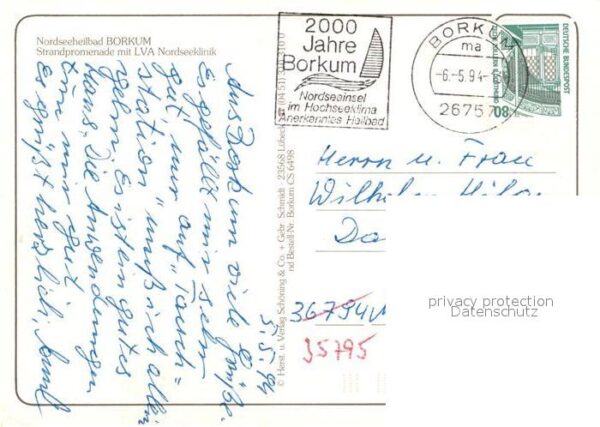 Nordseeheilbad BORKUM
Strandpromenade mit LVA Nordseeklinik
5.5.94
Aus Borkum viele Grüße.
Es gefällt mir sehr
gut nur auf "Tauch=
station" muß ich allein
gehn. Es ist ein gutes
Haus. Die Anwendungen
tun mir gut.
Es grüßt herzlich,
© Herst. u. Verlag Schöning & Co. + Gebr. Schmidt - 23568 Lübeck
nd Bestell-Nr. Borkum CS 6498
2000
Jahre
Borkum
Nordseeinsel
im Hochseeklima
anerkanntes Heilbad
BORKUM
ma
-6.-5.94-
26757
DEUTSCHE BUNDESPOST
08
Herrn u. Frau
Wilhelm
Da
36794
35795
privacy protection
Datenschutz